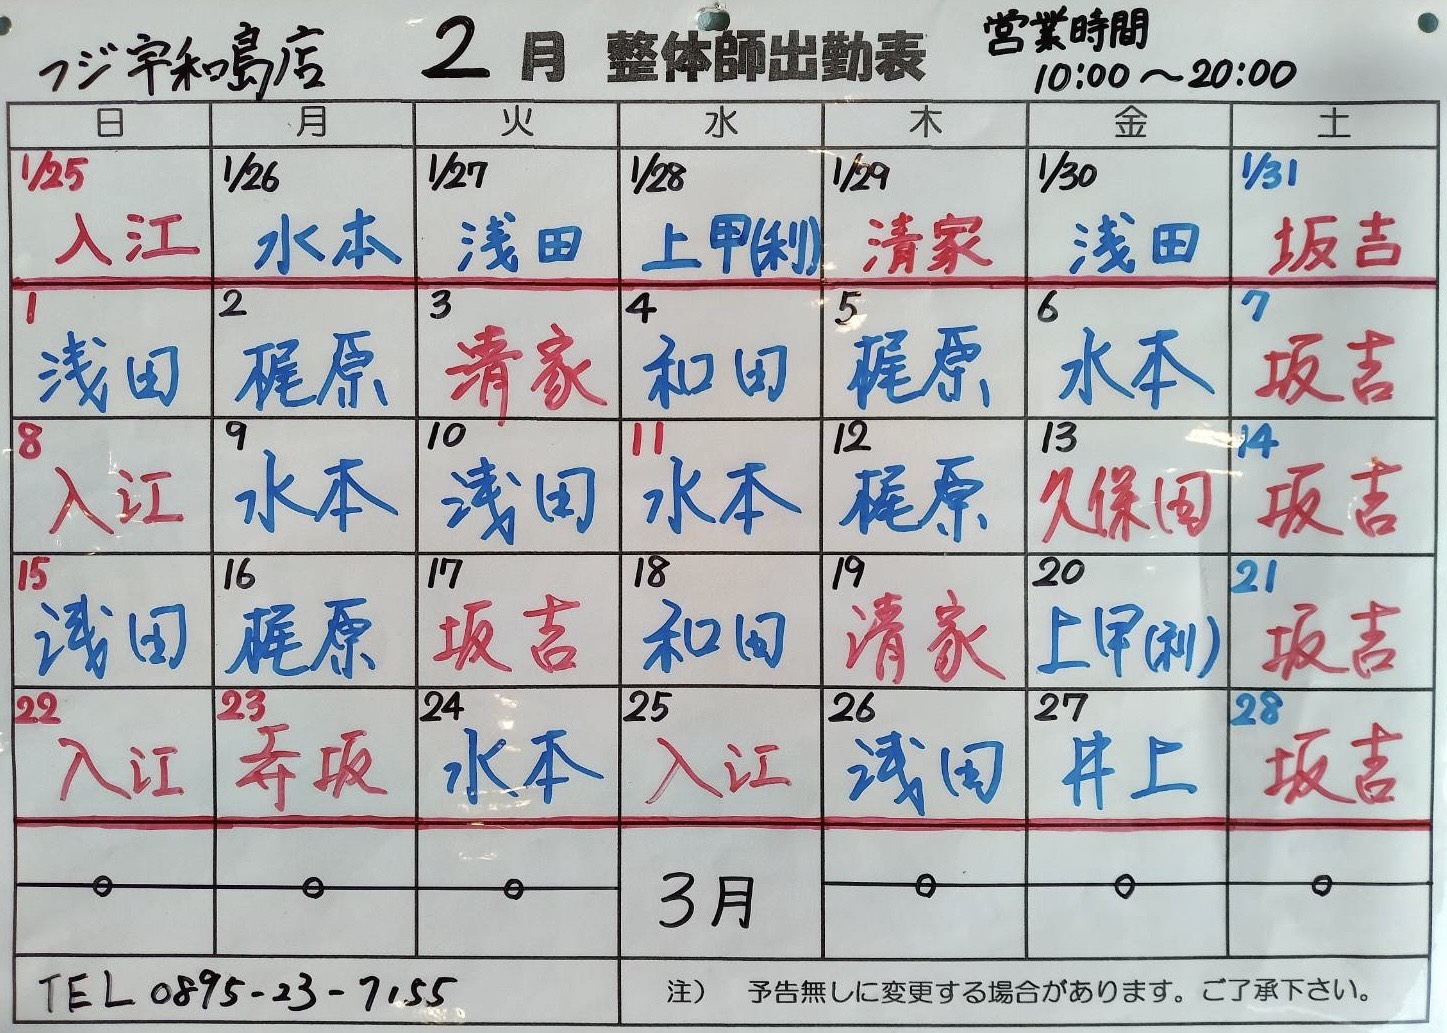 フジ宇和島店 2月 整体師出勤表 営業時間
10:00～20:00
日 月 火 水 木 金 土
1/25 1/26 1/27 1/28 1/29 1/30 1/31
入江 水本 浅田 上甲(利) 清家 浅田 坂吉
1 2 3 4 5 6 7
浅田 梶原 清家 和田 梶原 水本 坂吉
8 9 10 11 12 13 14
入江 水本 浅田 水本 梶原 久保田 坂吉
15 16 17 18 19 20 21
浅田 梶原 坂吉 和田 清家 上甲(利) 坂吉
22 23 24 25 26 27 28
入江 坂 水本 入江 浅田 井上 坂吉
3月
TEL 0895-23-7155
注） 予告無しに変更する場合があります。ご了承下さい。